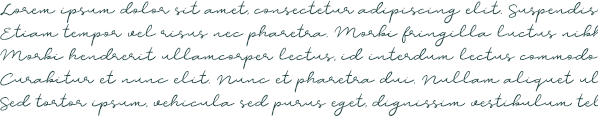 Lorem ipsum dolor sit amet, consectetur adipiscing elit. Suspendis
Etiam tempor vel risus nec pharetra. Morbi fringilla luctus nibh
Morbi hendrerit ullamcorper lectus, id interdum lectus commodo
Curabitur et nunc elit. Nunc et pharetra dui. Nullam aliquet ul
Sed tortor ipsum, vehicula sed purus eget, dignissim vestibulum tel